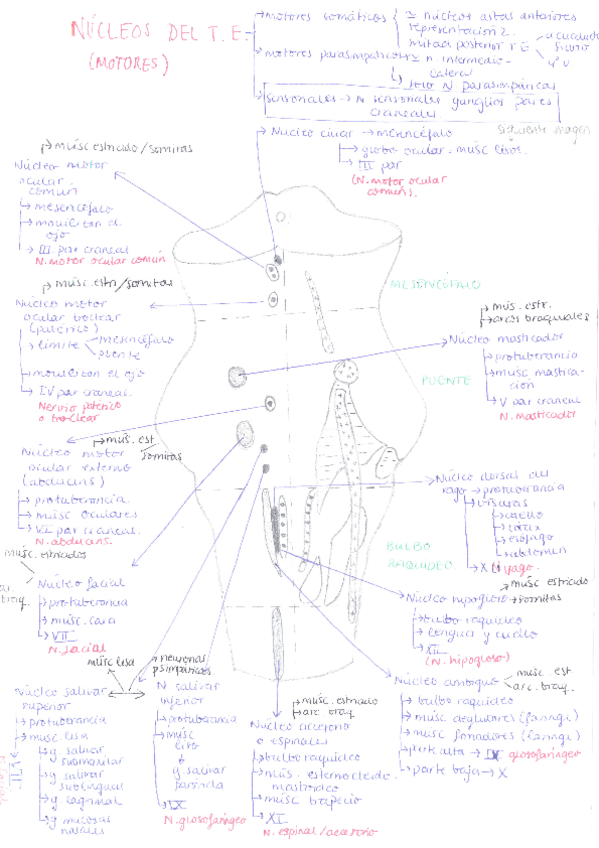 NÚCLEOS DEL T.E.
(MOTORES)
motores somáticos
≃ núcleos astas anteriores
representación
motores parasimpáticos ≃ n. intermedio-
lateral
solo N parasimpáticas
sensoriales → N sensoriales ganglios pares
craneales
siguiente imagen
Núcleo
→ mesencéfalo
globo ocular. musc lisos.
III par
(N. motor ocular
común).
músc estriado / somitas
Núcleo motor
ocular
común
→ mesencéfalo
→ movilizan el
ojo
→ III par craneal
N. motor ocular común
músc. estr/somitas
Núcleo motor
ocular troclear
(patético)
→ límite
mesencéfalo
puente
→ movilizan el ojo
→ IV par craneal.
Nervio patético
o troclear
MESENCÉFALO
mús. estr.
arcos braquiales
Núcleo masticador
→ protuberancia
→ musc mastica-
ción
→ V par craneal
N. masticador
PUENTE
mus. est
somitas
Núcleo motor
ocular externo
(abducens)
→ protuberancia
→ músc oculares
→ VI par craneal.
N. abducens.
Núcleo dorsal del
vago → protuberancia
→ vísceras
→ cuello
→ tórax
→ esófago
→ abdomen
→ X Vago.
BULBO
RAQUÍDEO
músc. estriados
Núcleo facial
→ protuberancia
→ músc. cara
→ VII
N. facial
músc estriado
somitas
Núcleo hipogloso
→ bulbo raquídeo
→ lengua y cuello
→ XII
(N. hipogloso)
músc lisa
neuronas
Núcleo salivar
superior
→ protuberancia
→ musc. lisa
→ g. salivar
submaxilar
→ g salivar
sublingual
→ g lagrimal
→ g mucosas
nasales
N salivar
inferior
→ protuberancia
→ musc
liso
g. salivar
parótida
→ IX
N. glosofaríngeo
músc. estriado
arc braq
Núcleo accesorio
o espinales
→ bulbo raquídeo
→ mús. esternocleido-
mastoideo
→ músc trapecio
→ XI
N. espinal / accesorio
musc est
arc. braq.
Núcleo ambiguo
→ bulbo raquídeo
→ musc deglutores (faringe)
→ musc fonadores (faringe)
→ parte alta → IX glosofaríngeo
→ parte baja → X